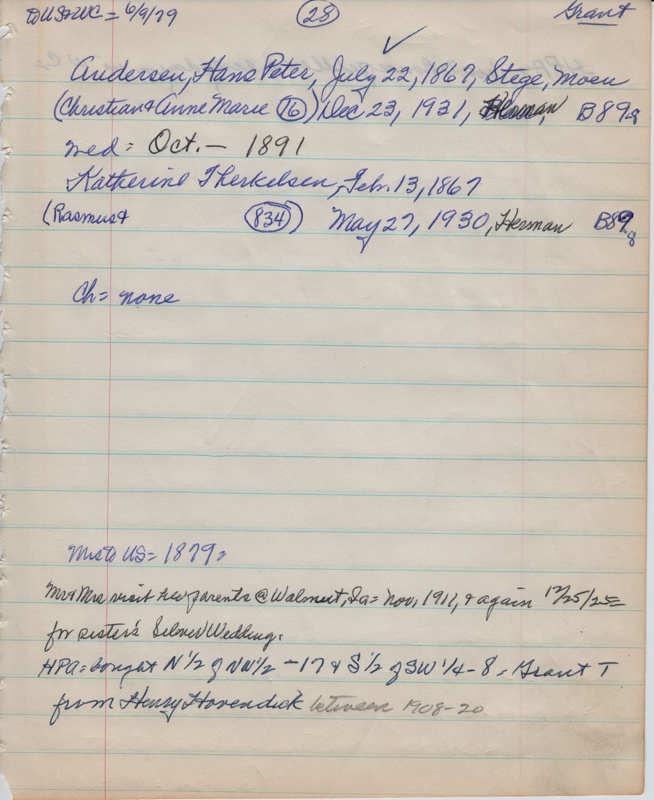 to US & WC = 6/9/79 (28) Grant
Andersen, Hans Peter, July 22, 1867, Stege, Moen
(Christian & Anne Marie (76)) Dec 23, 1931, Herman B89-8
wed = Oct. — 1891
Katherine Therkelsen, Feb. 13, 1867
(Rasmus & (834)) May 27, 1930, Herman B89-8
Ch = none
Mrs to US = 1879 =
Mr & Mrs visit her parents @ Walnut, Ia = Nov, 1911, & again 12/25/25 =
for sister's Silver Wedding.
HPA = bought N 1/2 of NW 1/4 - 17 & S 1/2 of SW 1/4 - 8 = Grant T
from Henry Hovendick between 1908-20